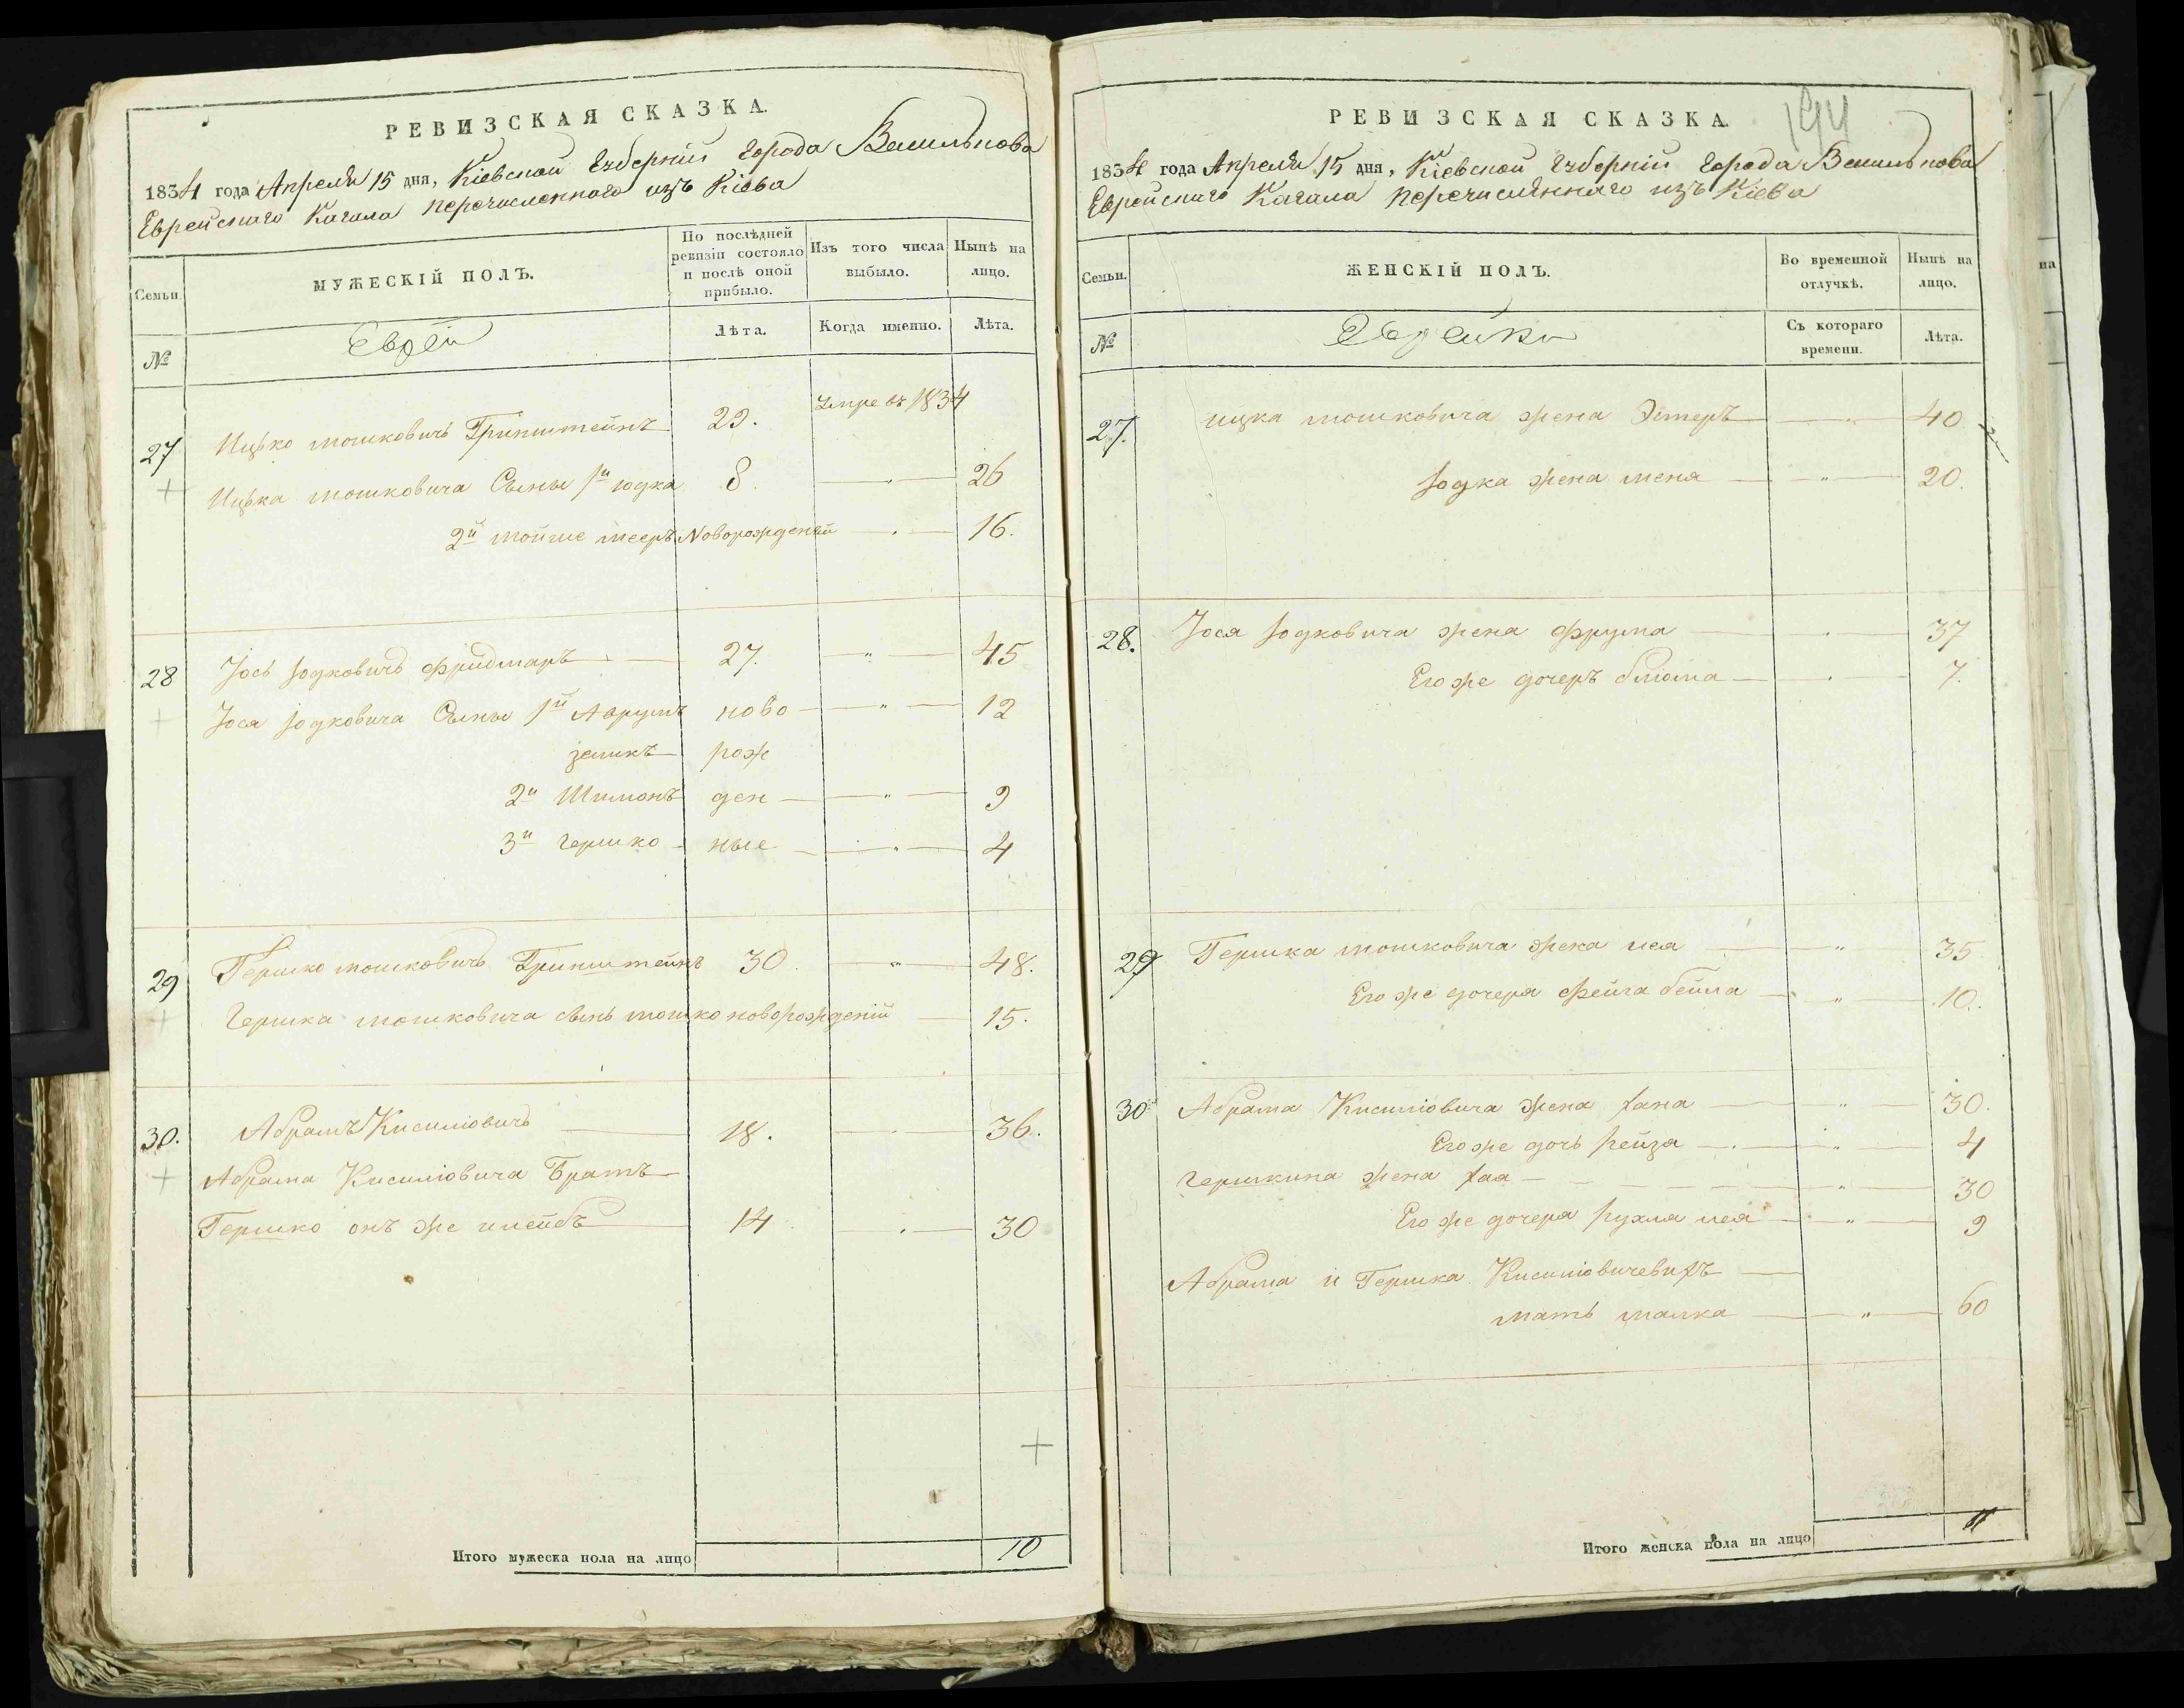 РЕВИЗСКАЯ СКАЗКА.
1834 года Апреля 15 дня, Кіевской Губерніи Города Василькова
Еврейскаго Кагала перечисленнаго изъ Кіева
Семьи.
МУЖЕСКІЙ ПОЛЪ.
По послѣдней ревизіи состояло и послѣ оной прибыло.
Изъ того числа выбыло.
Нынѣ на лицо.
№
Евреи
Лѣта.
Когда именно.
Лѣта.
27 Ицько мошковичъ Гринштейнъ 29. Умре въ 1834
Ицька мошковича Сыны 1й юдка 8. — " — 26
2й мойше мееръ Новорожденый — " — 16.
28 Іось Іодковичъ фридмаръ — 27. — " — 45
Іося Іодковича Сыны 1й Аврумъ ново — " — 12
зеликъ рож
2й Шимонъ ден — " — 9
3й гершко - ные — " — 4
29 Гершко мошковичъ Гринштейнъ 30. — " — 48.
Гершка мошковича сынъ мошко новорожденій — 15.
30. Абрамъ Кисиліовичъ — 18. — " — 36.
Абрама Кисиліовича Братъ
Гершко онъ же и лейбъ — 14 — " — 30
Итого мужеска пола на лицо 10
194
РЕВИЗСКАЯ СКАЗКА.
1834 года Апреля 15 дня, Кіевской Губерніи Города Василькова
Еврейскаго Кагала перечисленнаго изъ Кіева
Семьи.
ЖЕНСКІЙ ПОЛЪ.
Во временной отлучкѣ.
Нынѣ на лицо.
№
Еврейки
Съ котораго времени.
Лѣта.
27. ицка мошковича жена Эстеръ — " — 40
Іодка жена меня — " — 20.
28. Іося Іодковича жена фрума — " — 37
Его же дочеръ блюма — " — 7.
29 Гершка мошковича жена лея — " — 35
Его же дочеря Фейга бейла — " — 10.
30 Абрама Кисиліовича жена хана — " — 30.
Его же дочь рейзя — " — 4
Гершкина жена хая — " — 30
Его же дочеря рухля лея — " — 9
Абрама и Гершка Кисиліовичевихъ —
мать малка — " — 60
Итого женска пола на лицо 11